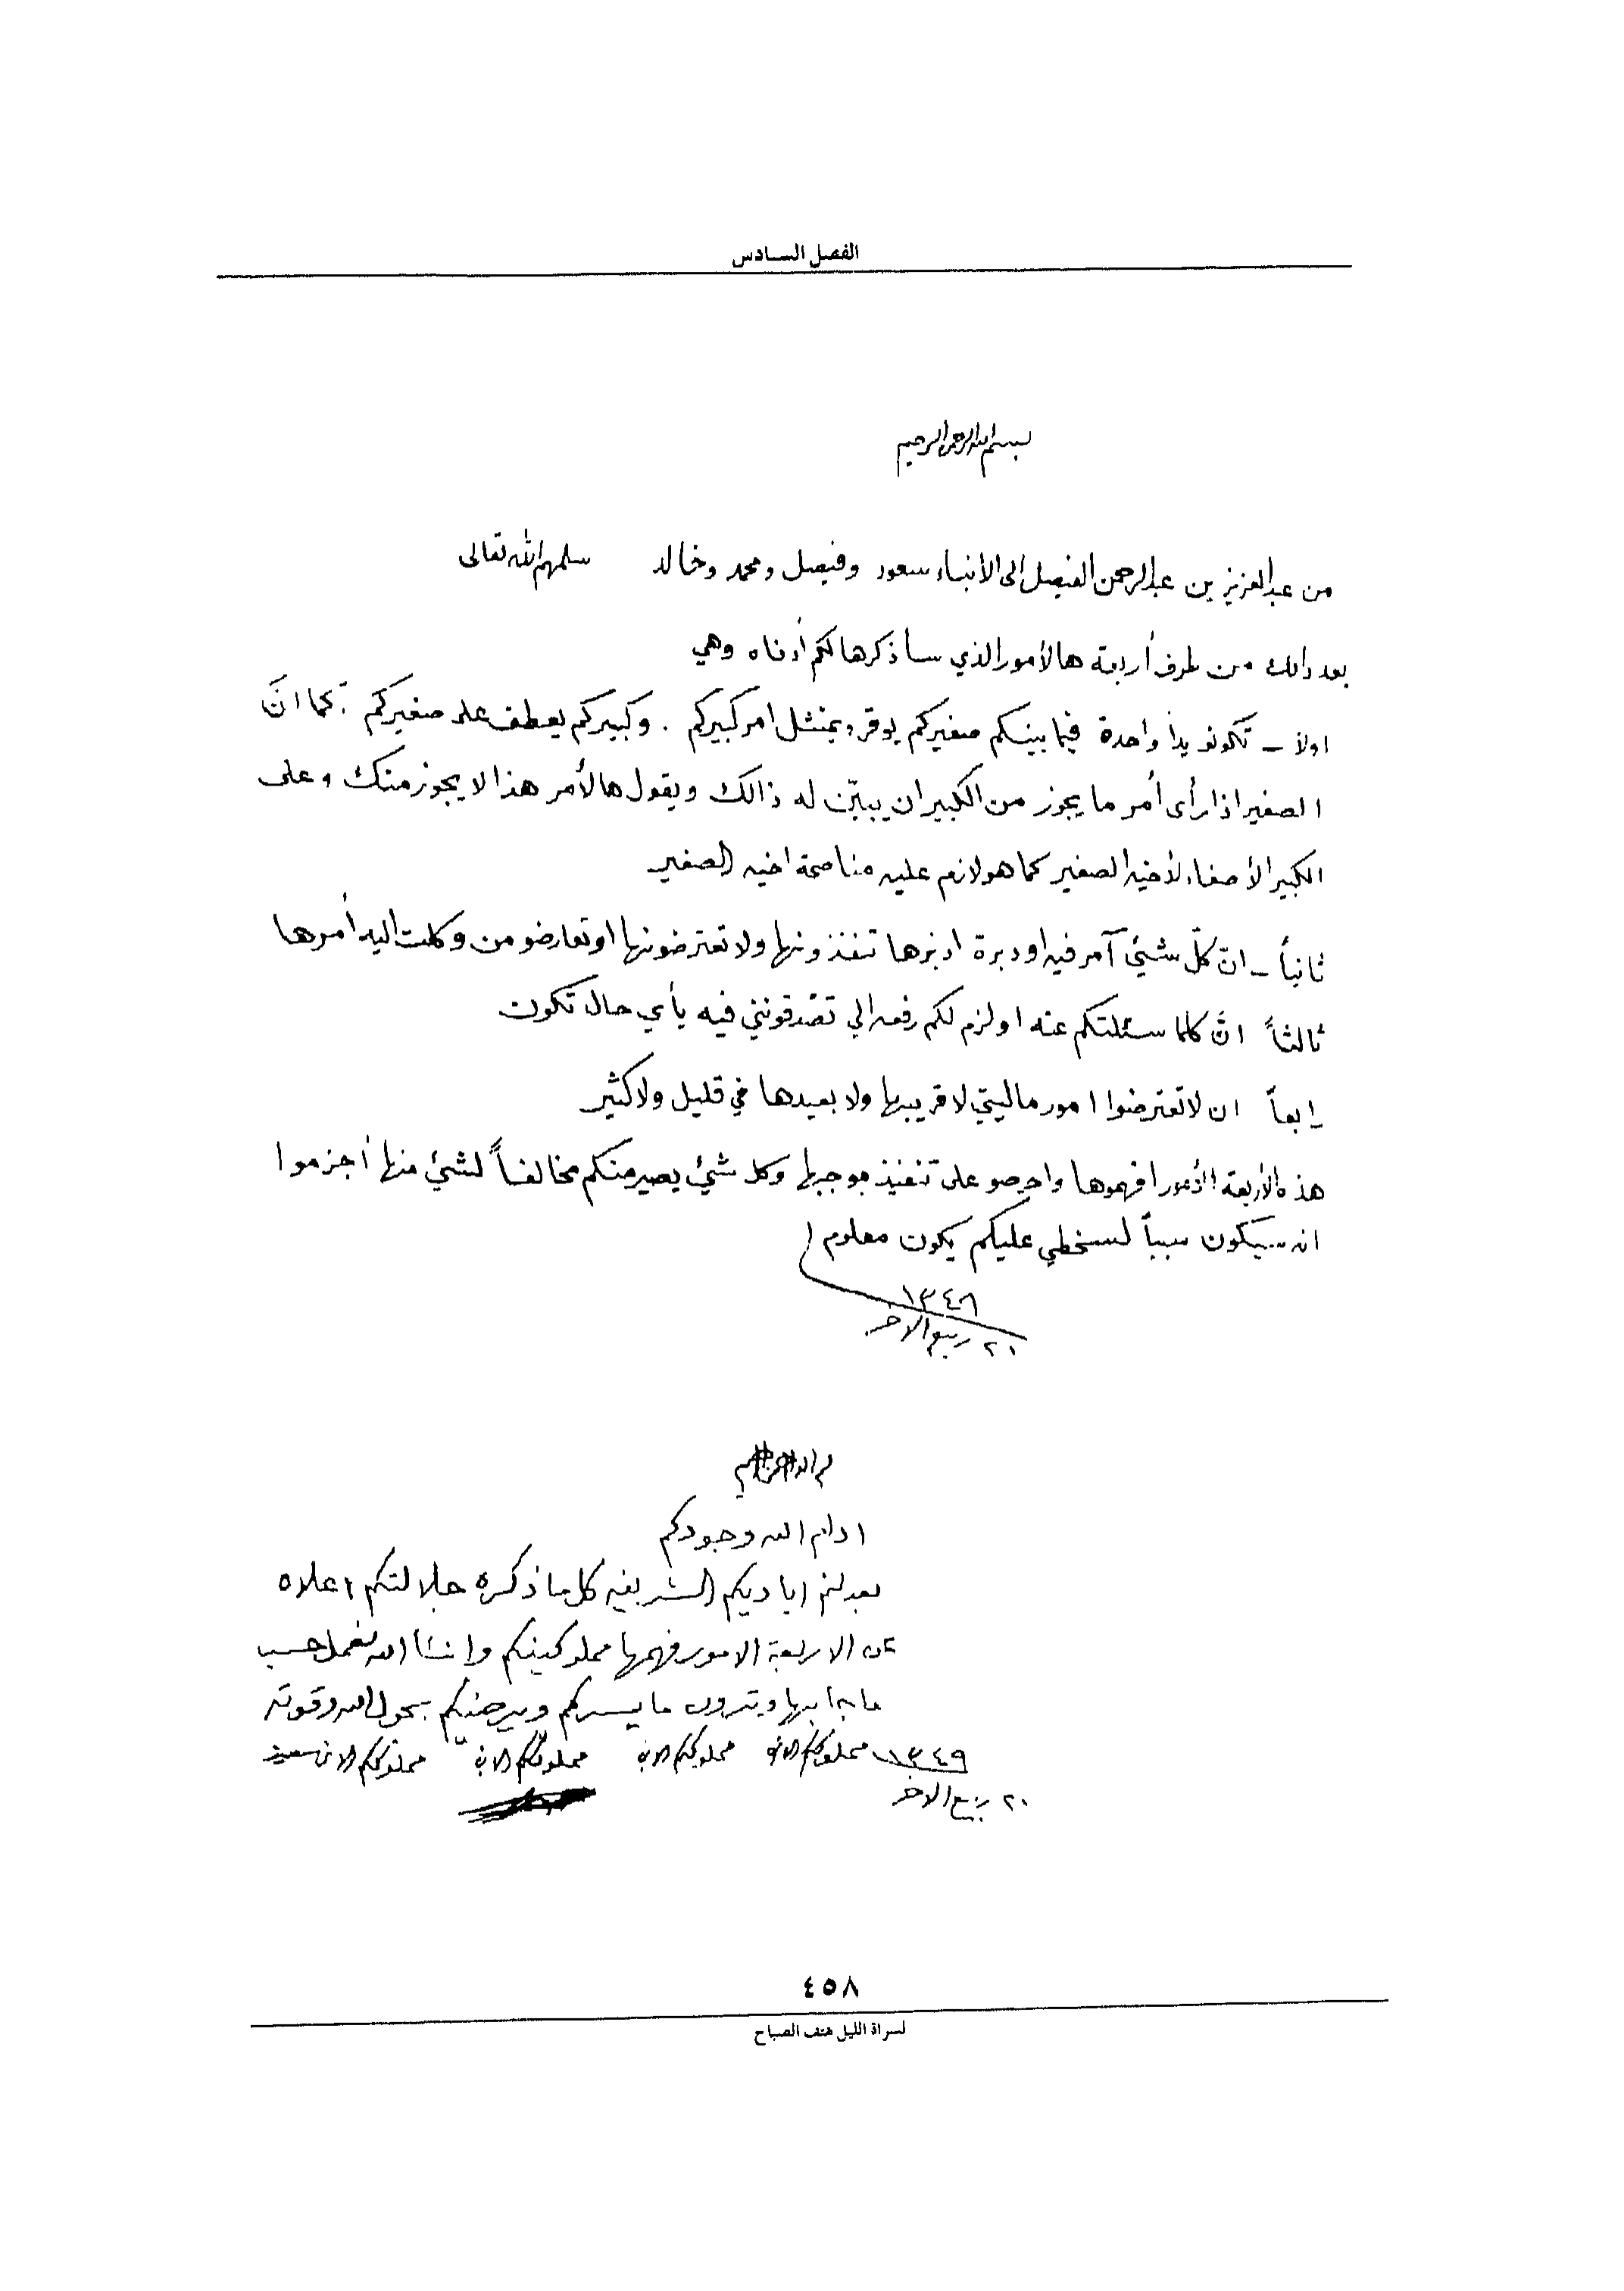 الفصل السادس
بسم الله الرحمن الرحيم
من عبدالعزيز بن عبدالرحمن الفيصل الى الأبناء سعود وفيصل ومحمد وخالد سلمهم الله تعالى
بعد ذالك من طرف أربعة هالأمور الذي سأذكرها لكم أدناه وهي
اولاً – تكونو يداً واحدة فيما بينكم صغيركم يوقر ويمتثل امر كبيركم . وكبيركم يعطف على صغيركم . كما انَّ
الصغير اذا رأى أمر ما يجوز من الكبير ان يبيّن له ذالك ويقول هالأمر هذا لا يجوز منك وعلى
الكبير الأصغاء لأخيه الصغير كما هو لازم عليه مناصحة اخيه الصغير
ثانياً – انّ كلّ شيئ آمر فيه او دبرة ادبرها تنفذونها ولا تعترضونها او تعارضو من وكلت اليه أمرها
ثالثاً انّ كلما سئلتكم عنه او لزم لكم رفعه الي تصْدقونني فيه بأي حال تكون
رابعاً ان لا تعترضوا امور ماليتي لا قريبها ولا بعيدها في قليل ولا كثير
هذه الأربعة الأمور افهموها واحرصو على تنفيذ موجبها وكل شيئ يصير منكم مخالفاً لشيئ منها أجزموا
انه سيكون سبباً لسخطي عليكم يكون معلوم
١٣٤٩
٢٠ ربيع الاخر
ادام الله وجودكم
بعد لثم اياديكم الشريفه كل ما ذكره جلالتكم اعلاه
عن الاربعة الامور فهمها مملوكينكم وانشاالله نعمل حسب
ما جا بها وترون ما يسركم ويرضيكم بحول الله وقوته
١٣٤٩ مملوككم الابن مملوككم الابن مملوككم الابن مملوككم الابن سعود
٢٠ ربيع الاخر
٤٥٨
لسراة الليل هتف الصباح